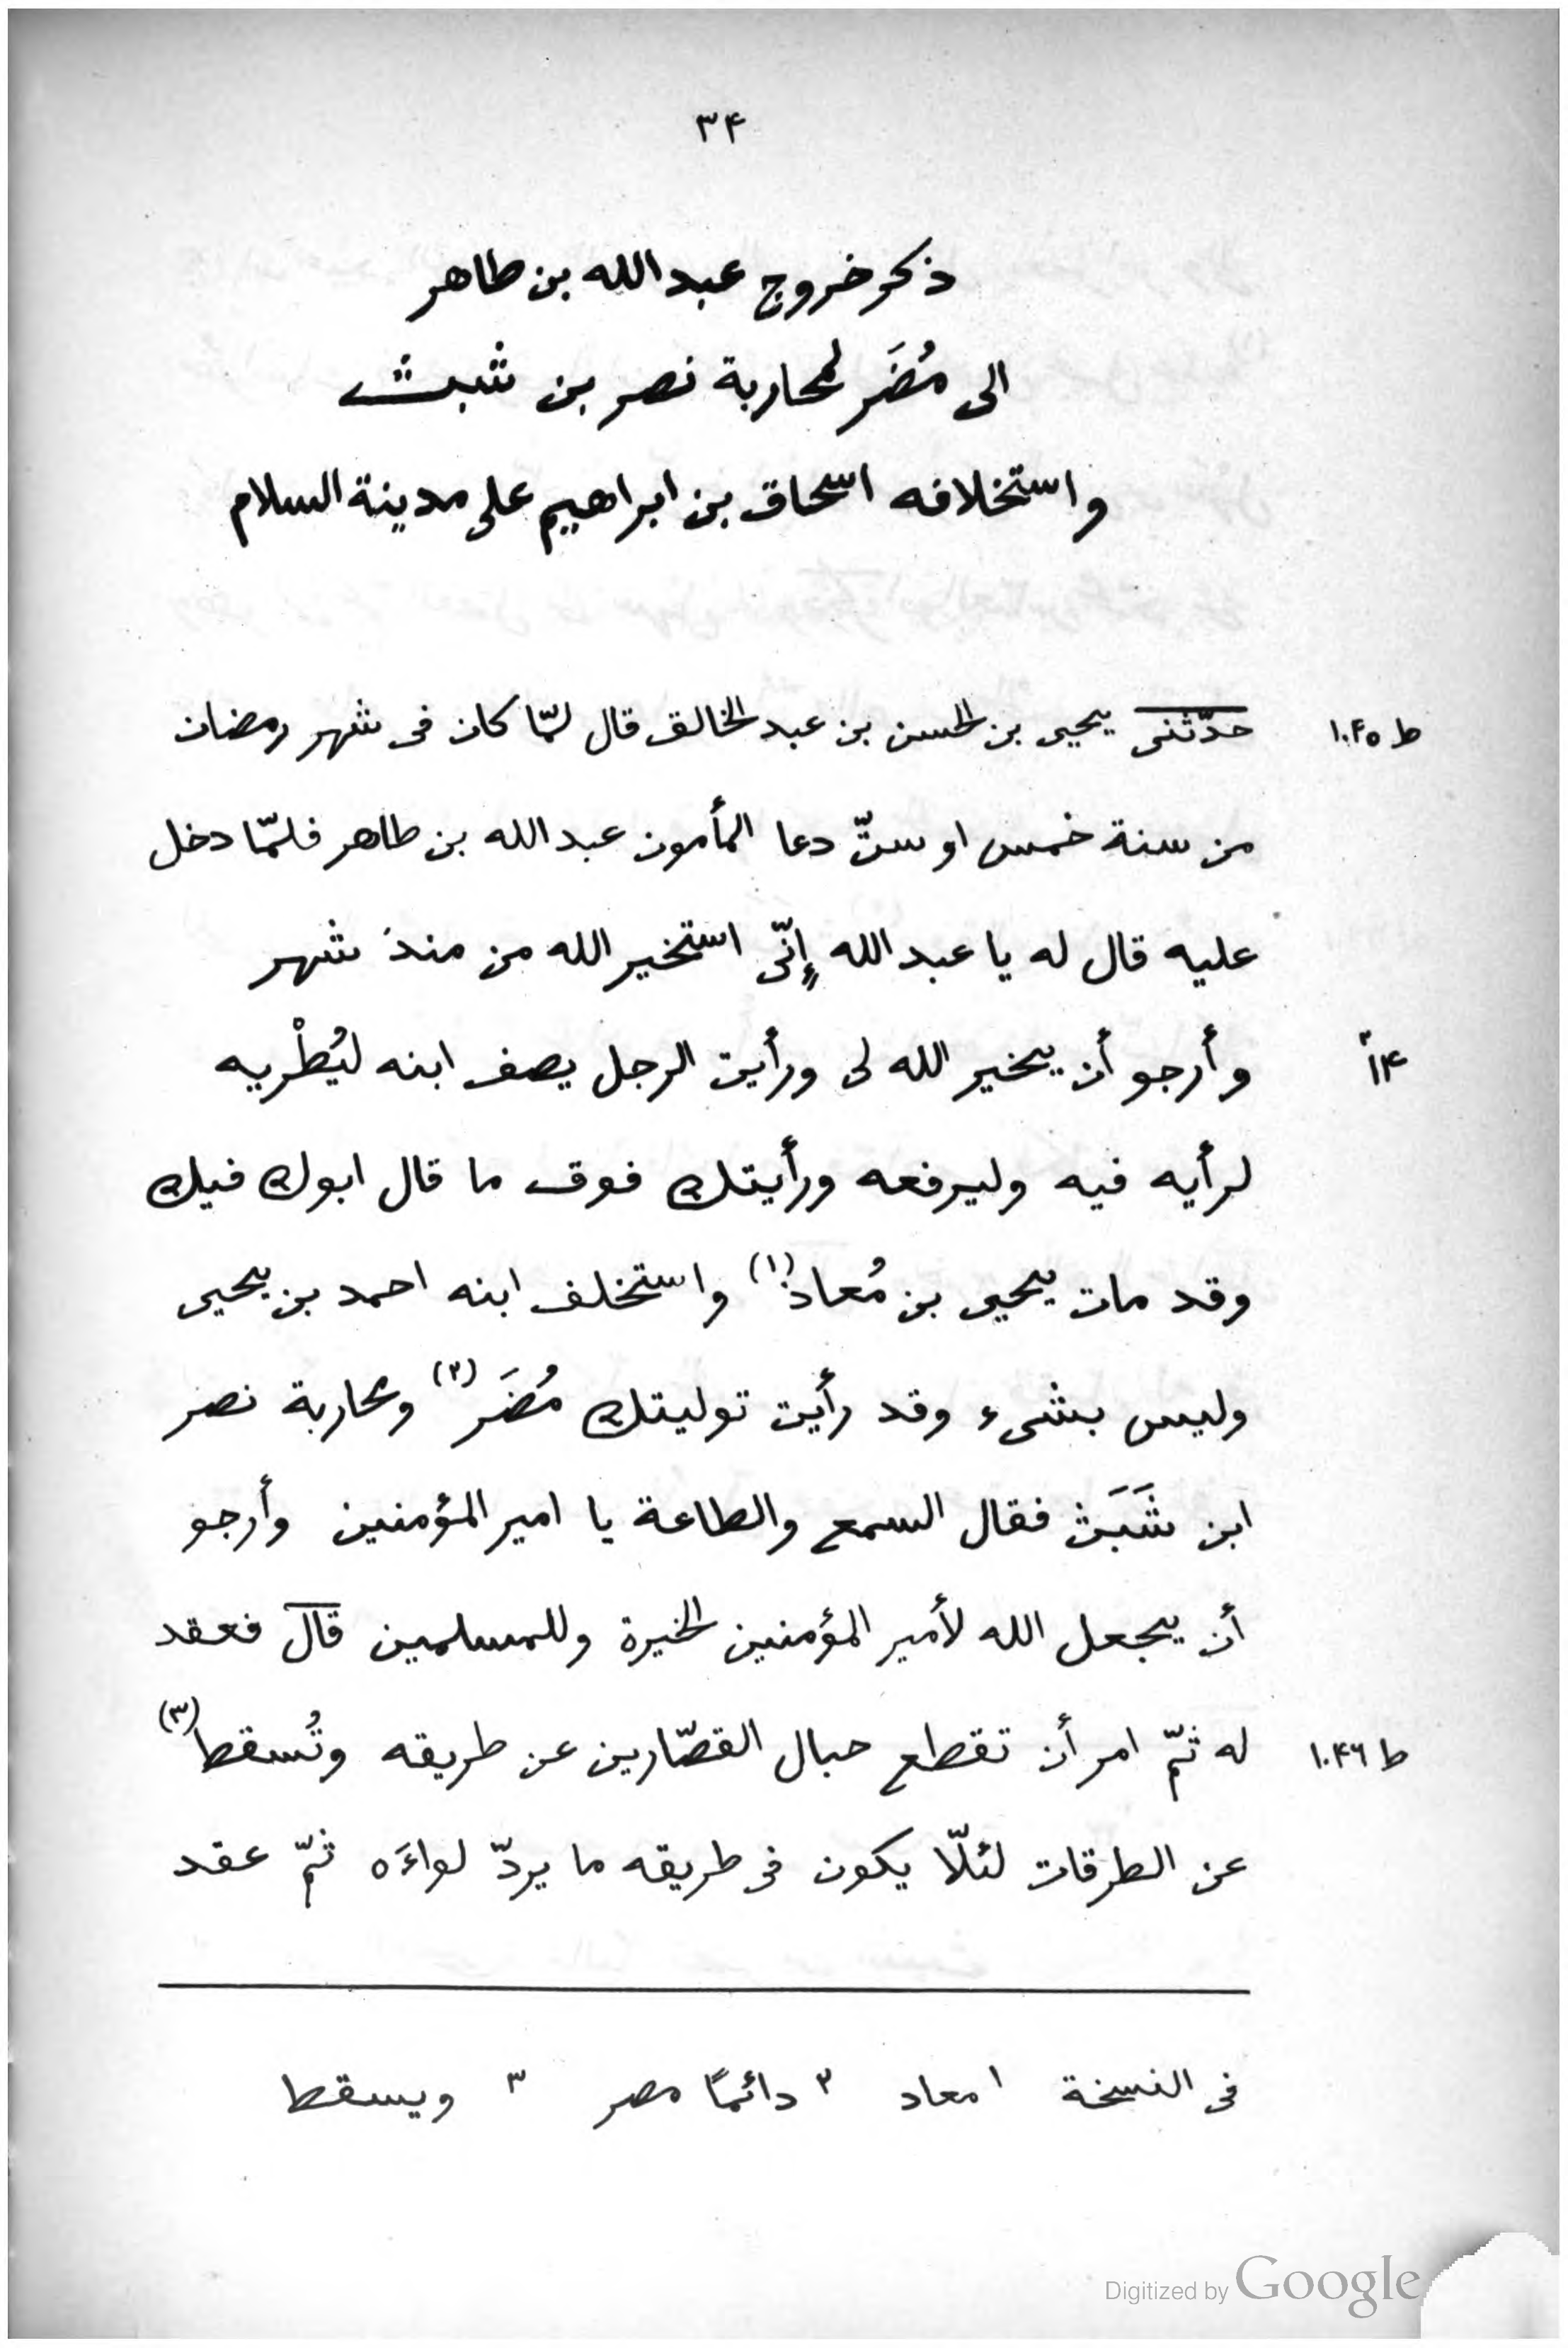 ٣۴
ذكر خروج عبد الله بن طاهر
الى مُضَر لمحاربة نصر بن شبث
واستخلافه اسحاق بن ابراهيم على مدينة السلام
ط ١٠۴٥ حدّثنى يحيى بن الحسن بن عبد الخالق قال لمّا كان فى شهر رمضان
من سنة خمس او ستّ دعا المأمون عبد الله بن طاهر فلمّا دخل
عليه قال له يا عبد الله إنّى استخير الله من منذ شهر
١۴آ وأرجو أن يخير الله لى ورأيت الرجل يصف ابنه ليُطْريه
لرأيه فيه وليرفعه ورأيتك فوق ما قال ابوك فيك
وقد مات يحيى بن مُعاذ (١) واستخلف ابنه احمد بن يحيى
وليس بشىء وقد رأيت توليتك مُضَر (٢) ومحاربة نصر
ابن شَبَث فقال السمع والطاعة يا امير المؤمنين وأرجو
أن يجعل الله لأمير المؤمنين الخيرة وللمسلمين قال فعقد
ط ١٠۴٦ له ثمّ امر أن تقطع حبال القصّارين عن طريقه وتُسقط (٣)
عن الطرقات لئلّا يكون فى طريقه ما يردّ لواءَه ثمّ عقد
فى النسخة ١ معاد ٢ دائمًا مصر ٣ ويسقط
Digitized by Google